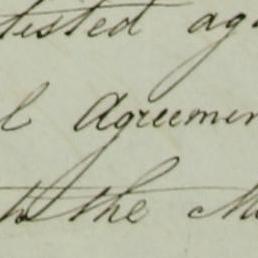 tested ag
l Agreemen
th the M